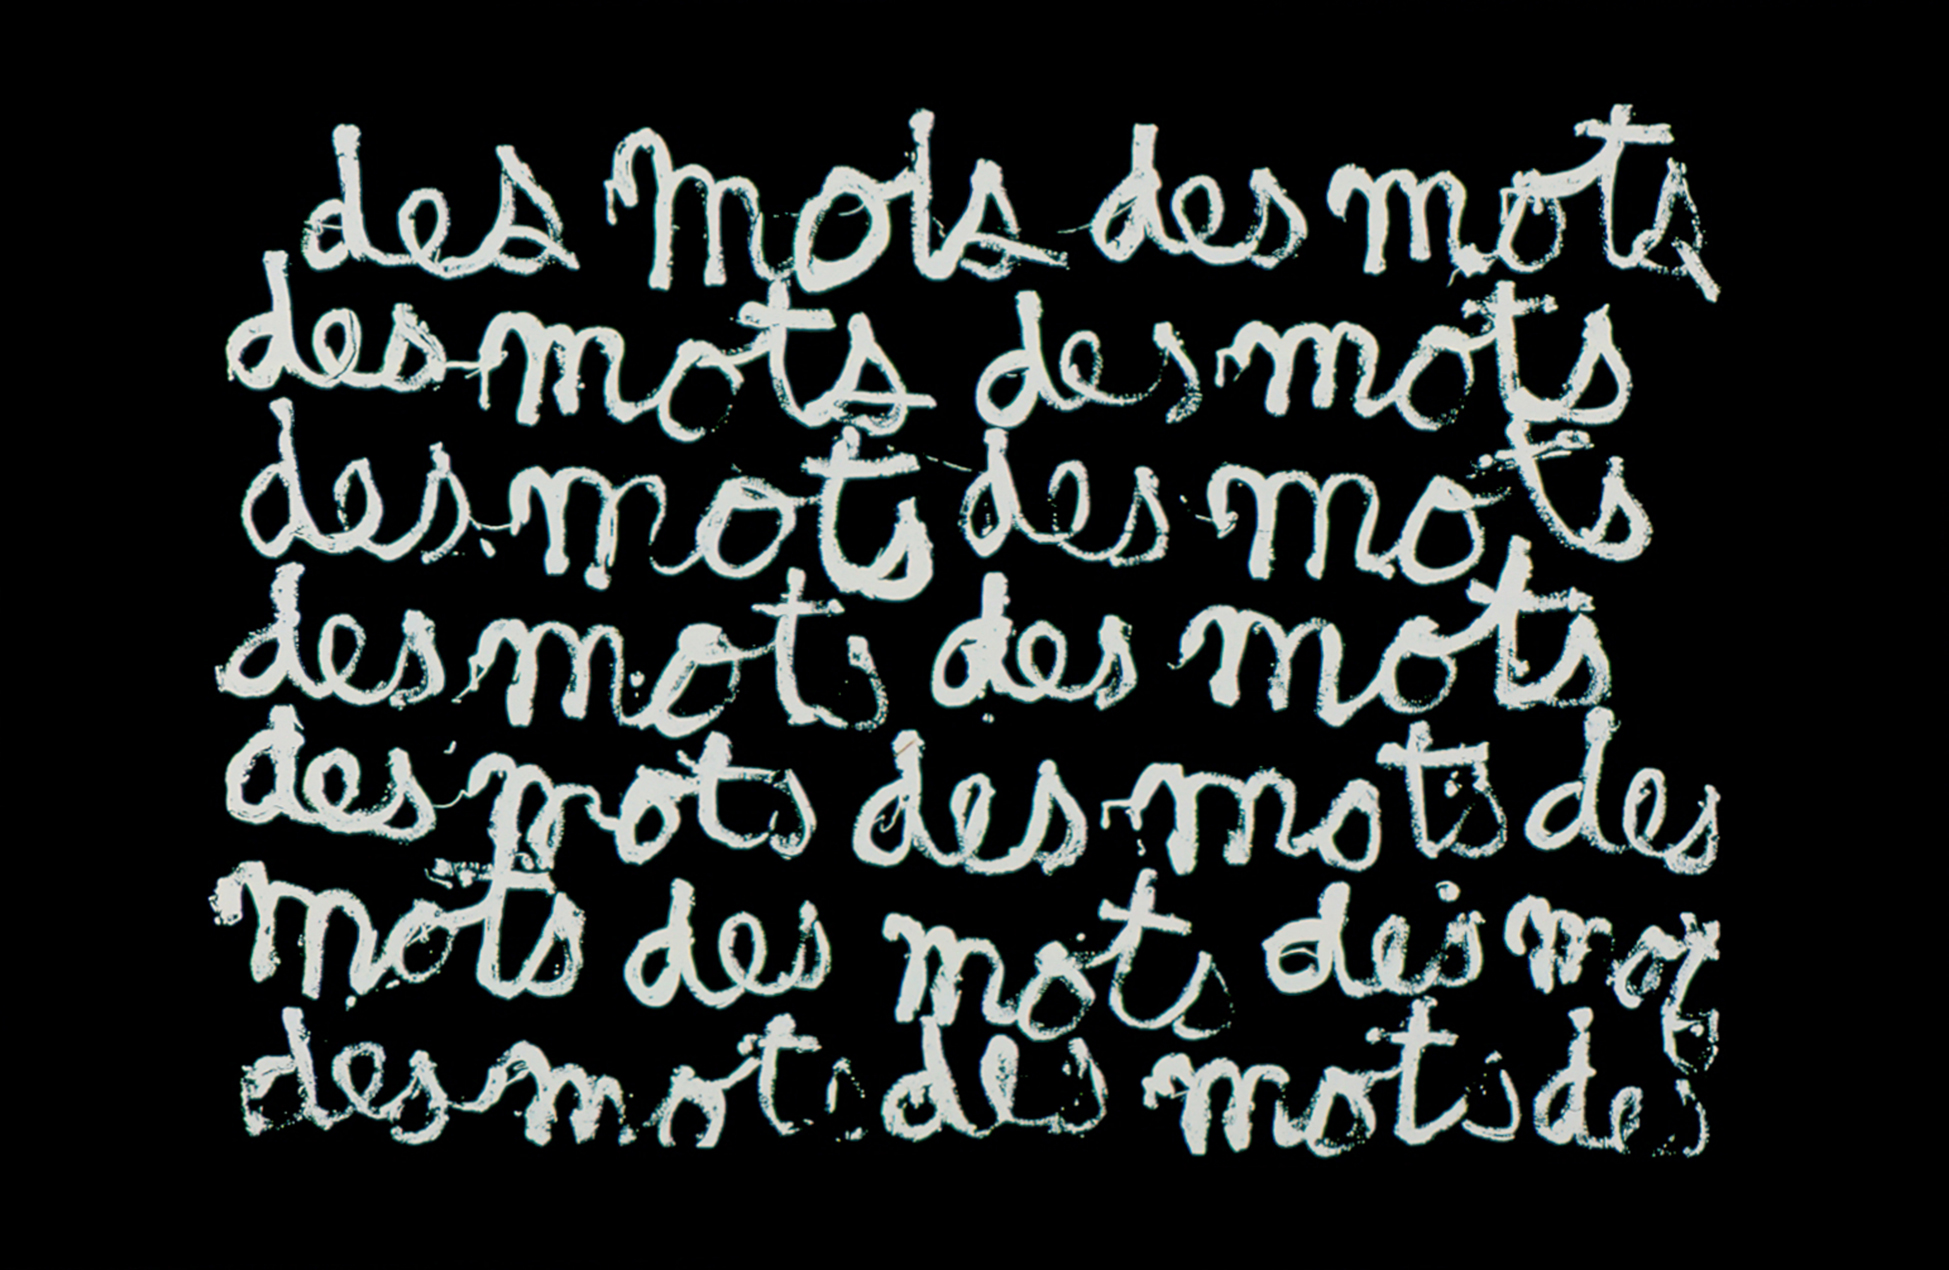 des mots des mots
des mots des mots
des mots des mots
des mots des mots
des mots des mots des
mots des mots des mot
des mots des mots des